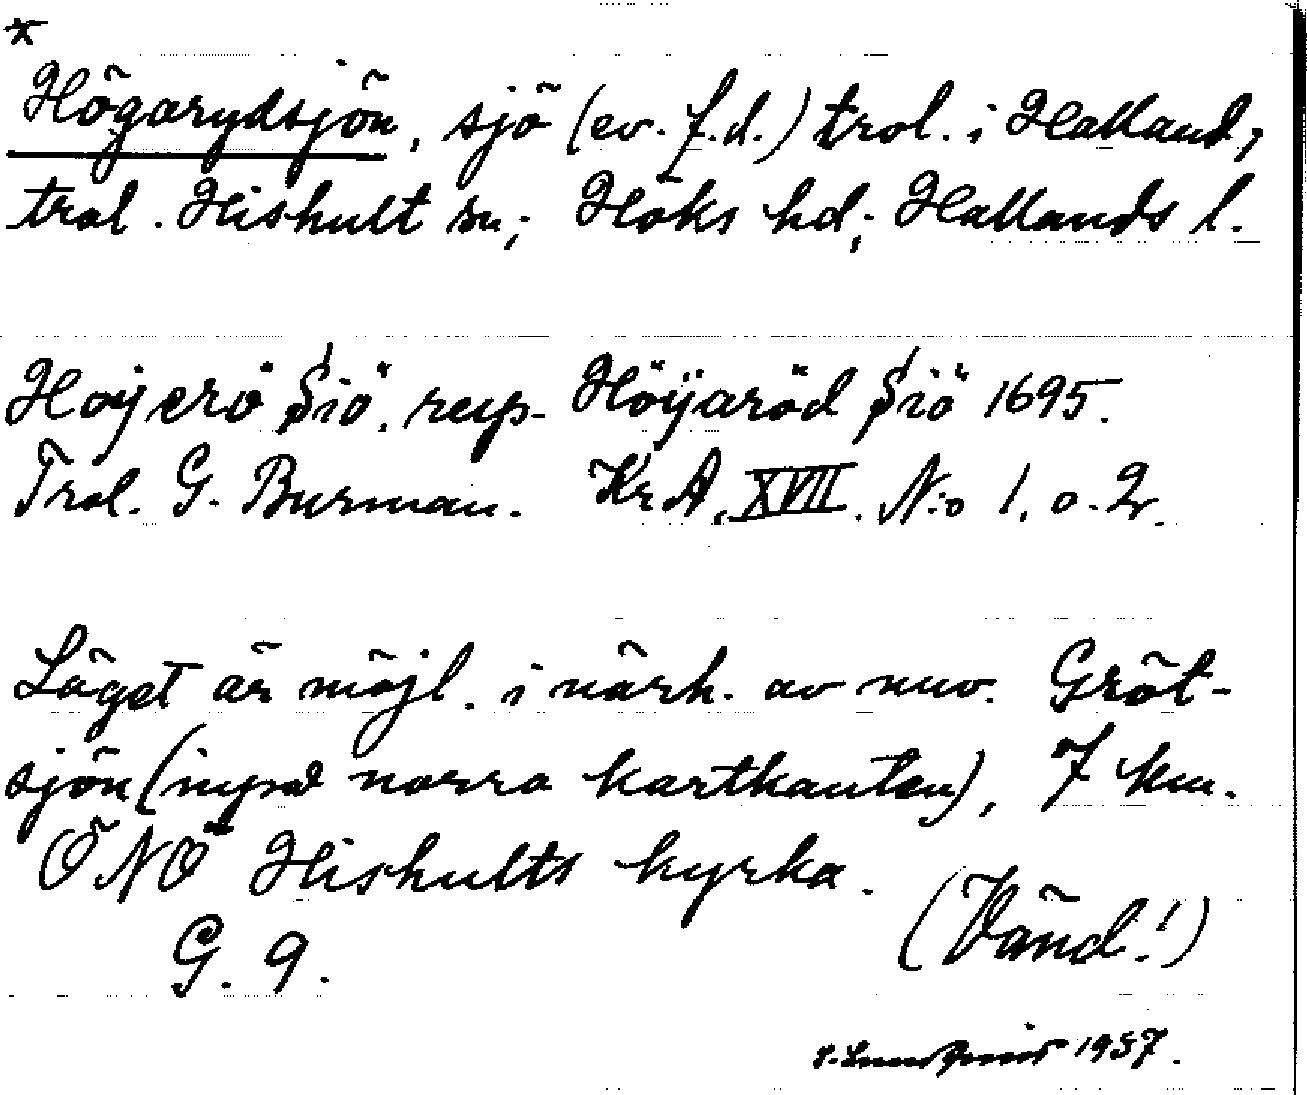 *
Högarydsjön, sjö (ev. f.d.) trol. i Halland,
trol. Hishult sn; Höks hd; Hallands l.
Höyerö Siö, resp. Höijaröd Siö 1695.
Trol. G. Burman. KrA. XVII. N:o 1. o. 2.
Läget är möjl. i närh. av nuv. Gröt-
sjön (invid norra kartkanten), 7 km.
ÖNÖ Hishults kyrka.
G. 9. (Vänd!)
1957.